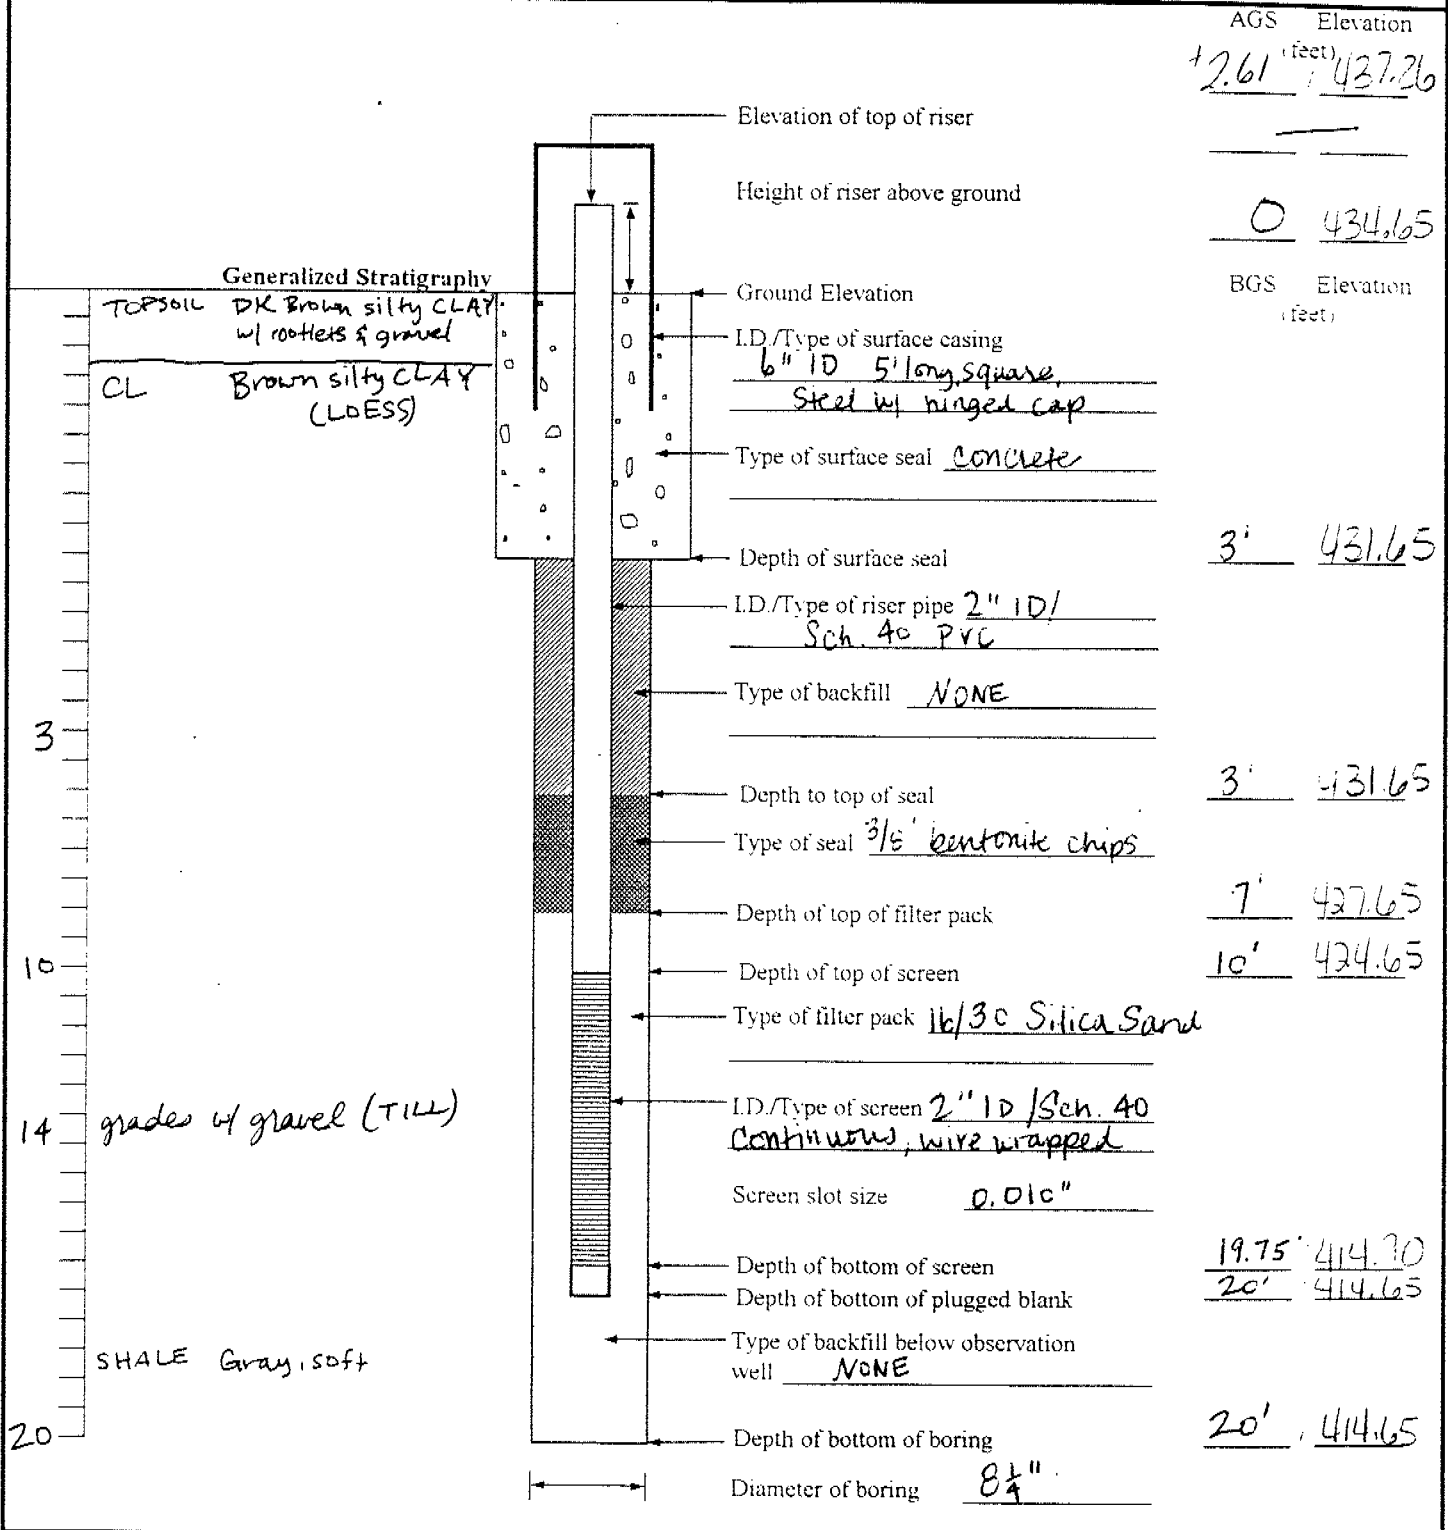 AGS Elevation
(feet)
+2.61 437.26
Elevation of top of riser
—
Height of riser above ground
0 434.65
Generalized Stratigraphy
TOPSOIL DK Brown silty CLAY
w/ rootlets & gravel
CL Brown silty CLAY
(LOESS)
Ground Elevation
BGS Elevation
(feet)
I.D./Type of surface casing
6" ID 5' long, square,
Steel w/ hinged cap
Type of surface seal concrete
Depth of surface seal 3' 431.65
I.D./Type of riser pipe 2" ID/
Sch. 40 PVC
Type of backfill NONE
3
Depth to top of seal 3' 431.65
Type of seal 3/8' bentonite chips
Depth of top of filter pack 7' 427.65
10
Depth of top of screen 10' 424.65
Type of filter pack 16/30 Silica Sand
14 grades w/ gravel (TILL)
I.D./Type of screen 2" ID/Sch. 40
Continuous, wire wrapped
Screen slot size 0.010"
Depth of bottom of screen 19.75' 414.70
Depth of bottom of plugged blank 20' 414.65
Type of backfill below observation
well NONE
SHALE Gray, soft
20
Depth of bottom of boring 20' 414.65
Diameter of boring 8 1/4"